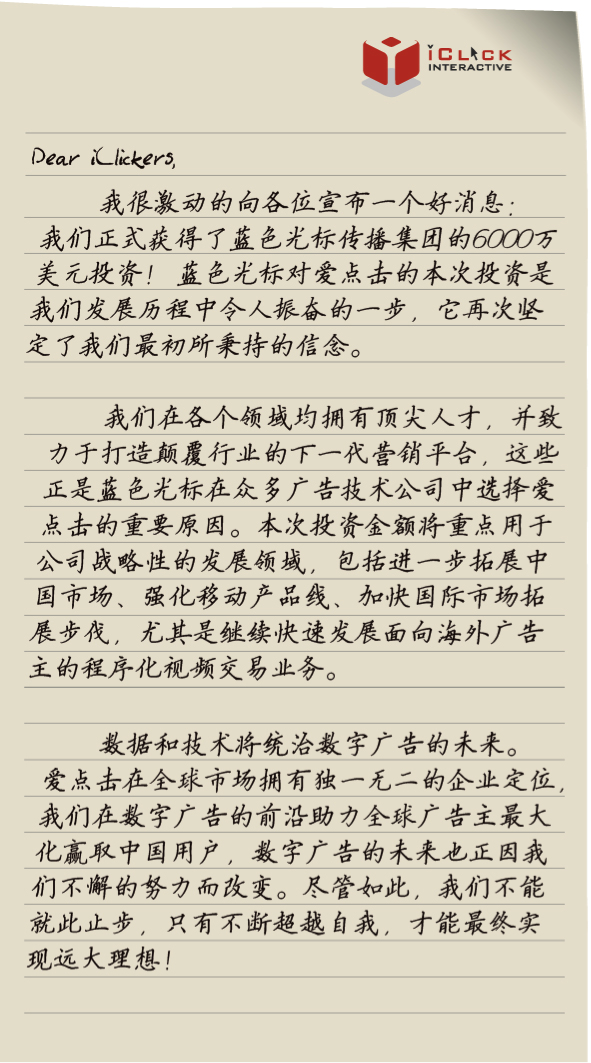 iCLICK
INTERACTIVE
Dear iClickers,
我很激动的向各位宣布一个好消息：
我们正式获得了蓝色光标传播集团的6000万
美元投资！ 蓝色光标对爱点击的本次投资是
我们发展历程中令人振奋的一步，它再次坚
定了我们最初所秉持的信念。
我们在各个领域均拥有顶尖人才，并致
力于打造颠覆行业的下一代营销平台，这些
正是蓝色光标在众多广告技术公司中选择爱
点击的重要原因。本次投资金额将重点用于
公司战略性的发展领域，包括进一步拓展中
国市场、强化移动产品线、加快国际市场拓
展步伐，尤其是继续快速发展面向海外广告
主的程序化视频交易业务。
数据和技术将统治数字广告的未来。
爱点击在全球市场拥有独一无二的企业定位，
我们在数字广告的前沿助力全球广告主最大
化赢取中国用户，数字广告的未来也正因我
们不懈的努力而改变。尽管如此，我们不能
就此止步，只有不断超越自我，才能最终实
现远大理想！